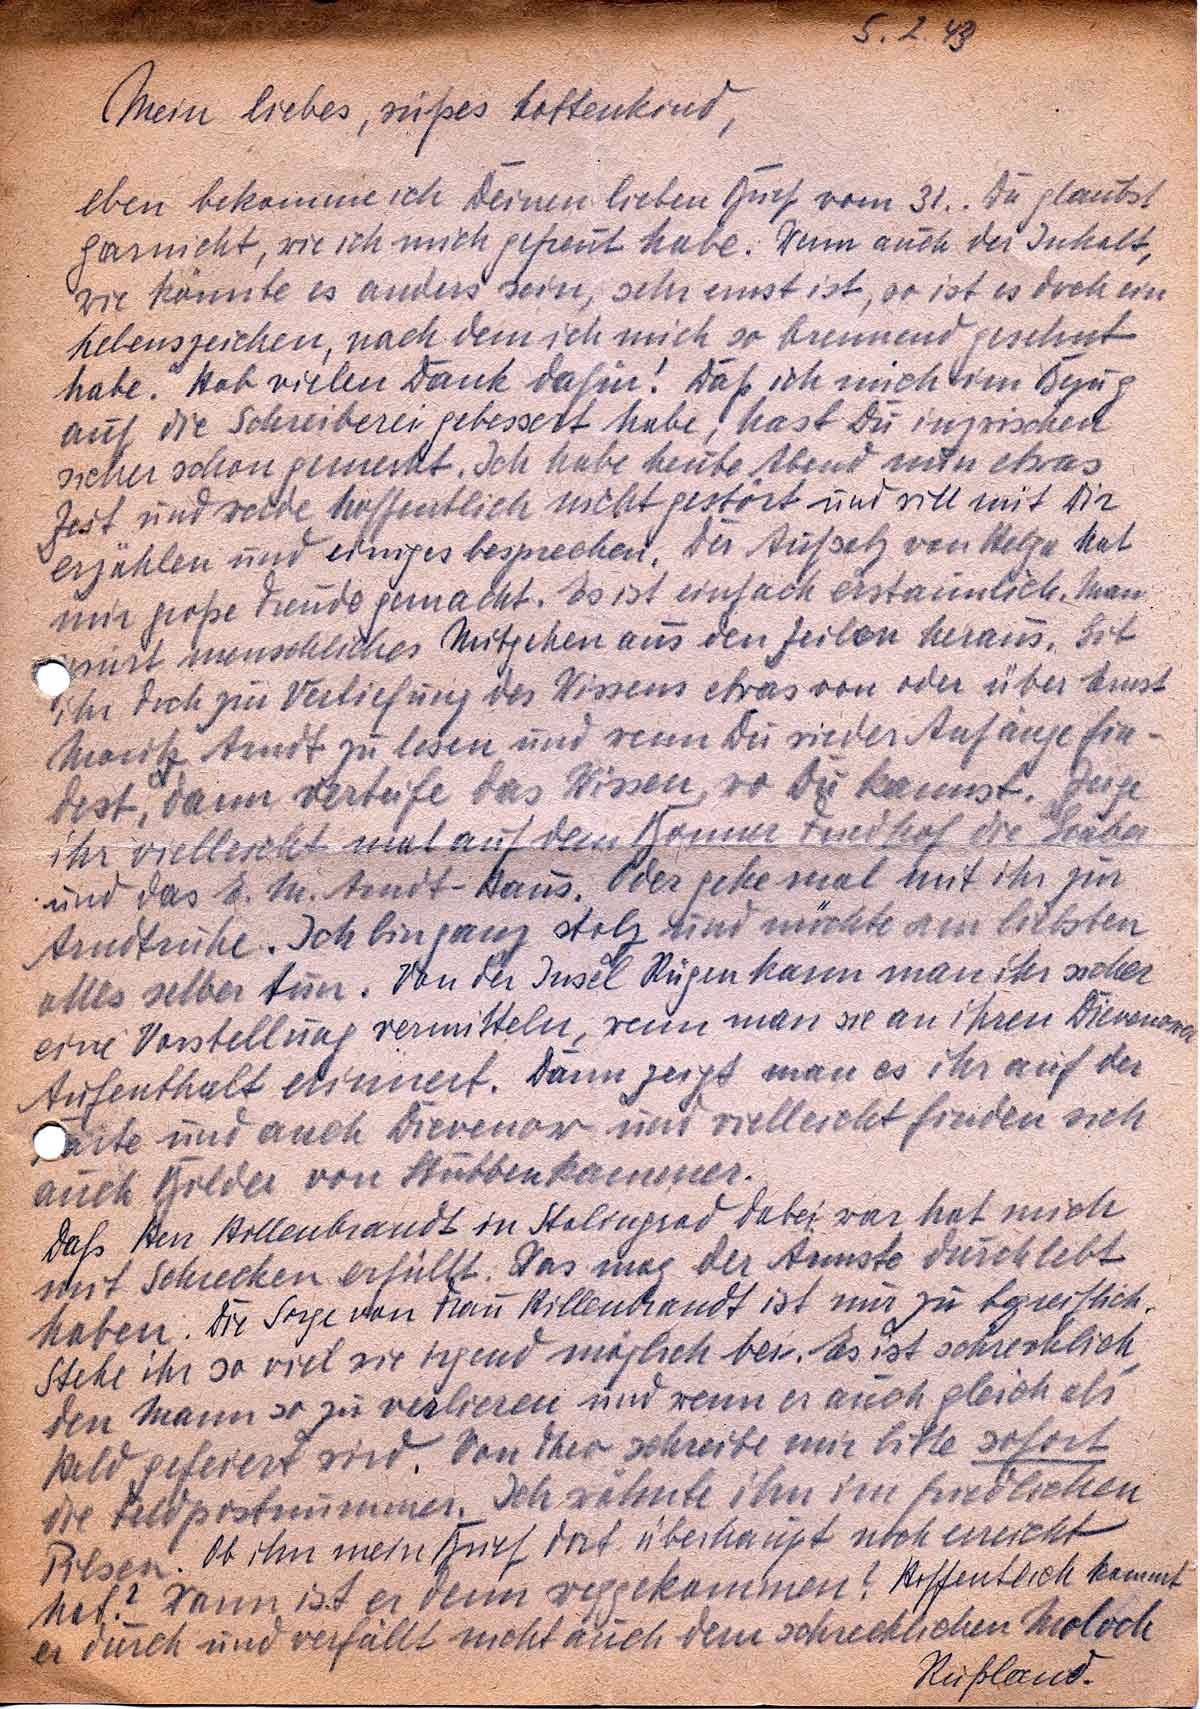 5. 2. 43
Mein liebes, süßes Lottenkind,
eben bekomme ich Deinen lieben Brief vom 31.. Du glaubst
garnicht, wie ich mich gefreut habe. Wenn auch der Inhalt,
wie könnte es anders sein, sehr ernst ist, so ist es doch ein
Lebenszeichen, nach dem ich mich so brennend gesehnt
habe. Hab vielen Dank dafür! Daß ich mich im Bezug
auf die Schreiberei gebessert habe, hast Du inzwischen
sicher schon gemerkt. Ich habe heute Abend nun etwas
Zeit und werde hoffentlich nicht gestört und will mit Dir
erzählen und einiges besprechen. Der Aufsatz von Helga hat
mir große Freude gemacht. Es ist einfach erstaunlich. Man
spürt menschliches Mitgehen aus den Zeilen heraus. Gib
ihr doch zur Vertiefung des Wissens etwas von oder über Ernst
Moritz Arndt zu lesen und wenn Du wieder Anfänge fin-
dest, dann vertiefe das Wissen, wo Du kannst. Zeige
ihr vielleicht mal auf dem Bonner Friedhof die Gräber
und das E. M. Arndt-Haus. Oder gehe mal mit ihr zur
Arndtruhe. Ich bin ganz stolz und möchte am liebsten
alles selber tun. Von der Insel Rügen kann man ihr sicher
eine Vorstellung vermitteln, wenn man sie an ihren Dievenower
Aufenthalt erinnert. Dann zeigt man es ihr auf der
Karte und auch Dievenow und vielleicht finden sich
auch Bilder von Stubbenkammer.
Daß Herr Hillenbrandt in Stalingrad dabei war hat mich
mit Schrecken erfüllt. Was mag der Ärmste durchlebt
haben. Die Sorge von Frau Hillenbrandt ist nur zu begreiflich.
Stehe ihr so viel wie irgend möglich bei. Es ist schrecklich,
den Mann so zu verlieren und wenn er auch gleich als
Held gefeiert wird. Von Theo schreibe mir bitte sofort
die Feldpostnummer. Ich wähnte ihn im friedlichen
Pilsen. Ob ihn mein Brief dort überhaupt noch erreicht
hat? Wann ist er denn weggekommen? Hoffentlich kommt
er durch und verfällt nicht auch dem schrecklichen Moloch
Rußland.